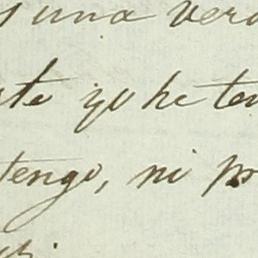 una verd
ste yo he ten
tengo, ni p